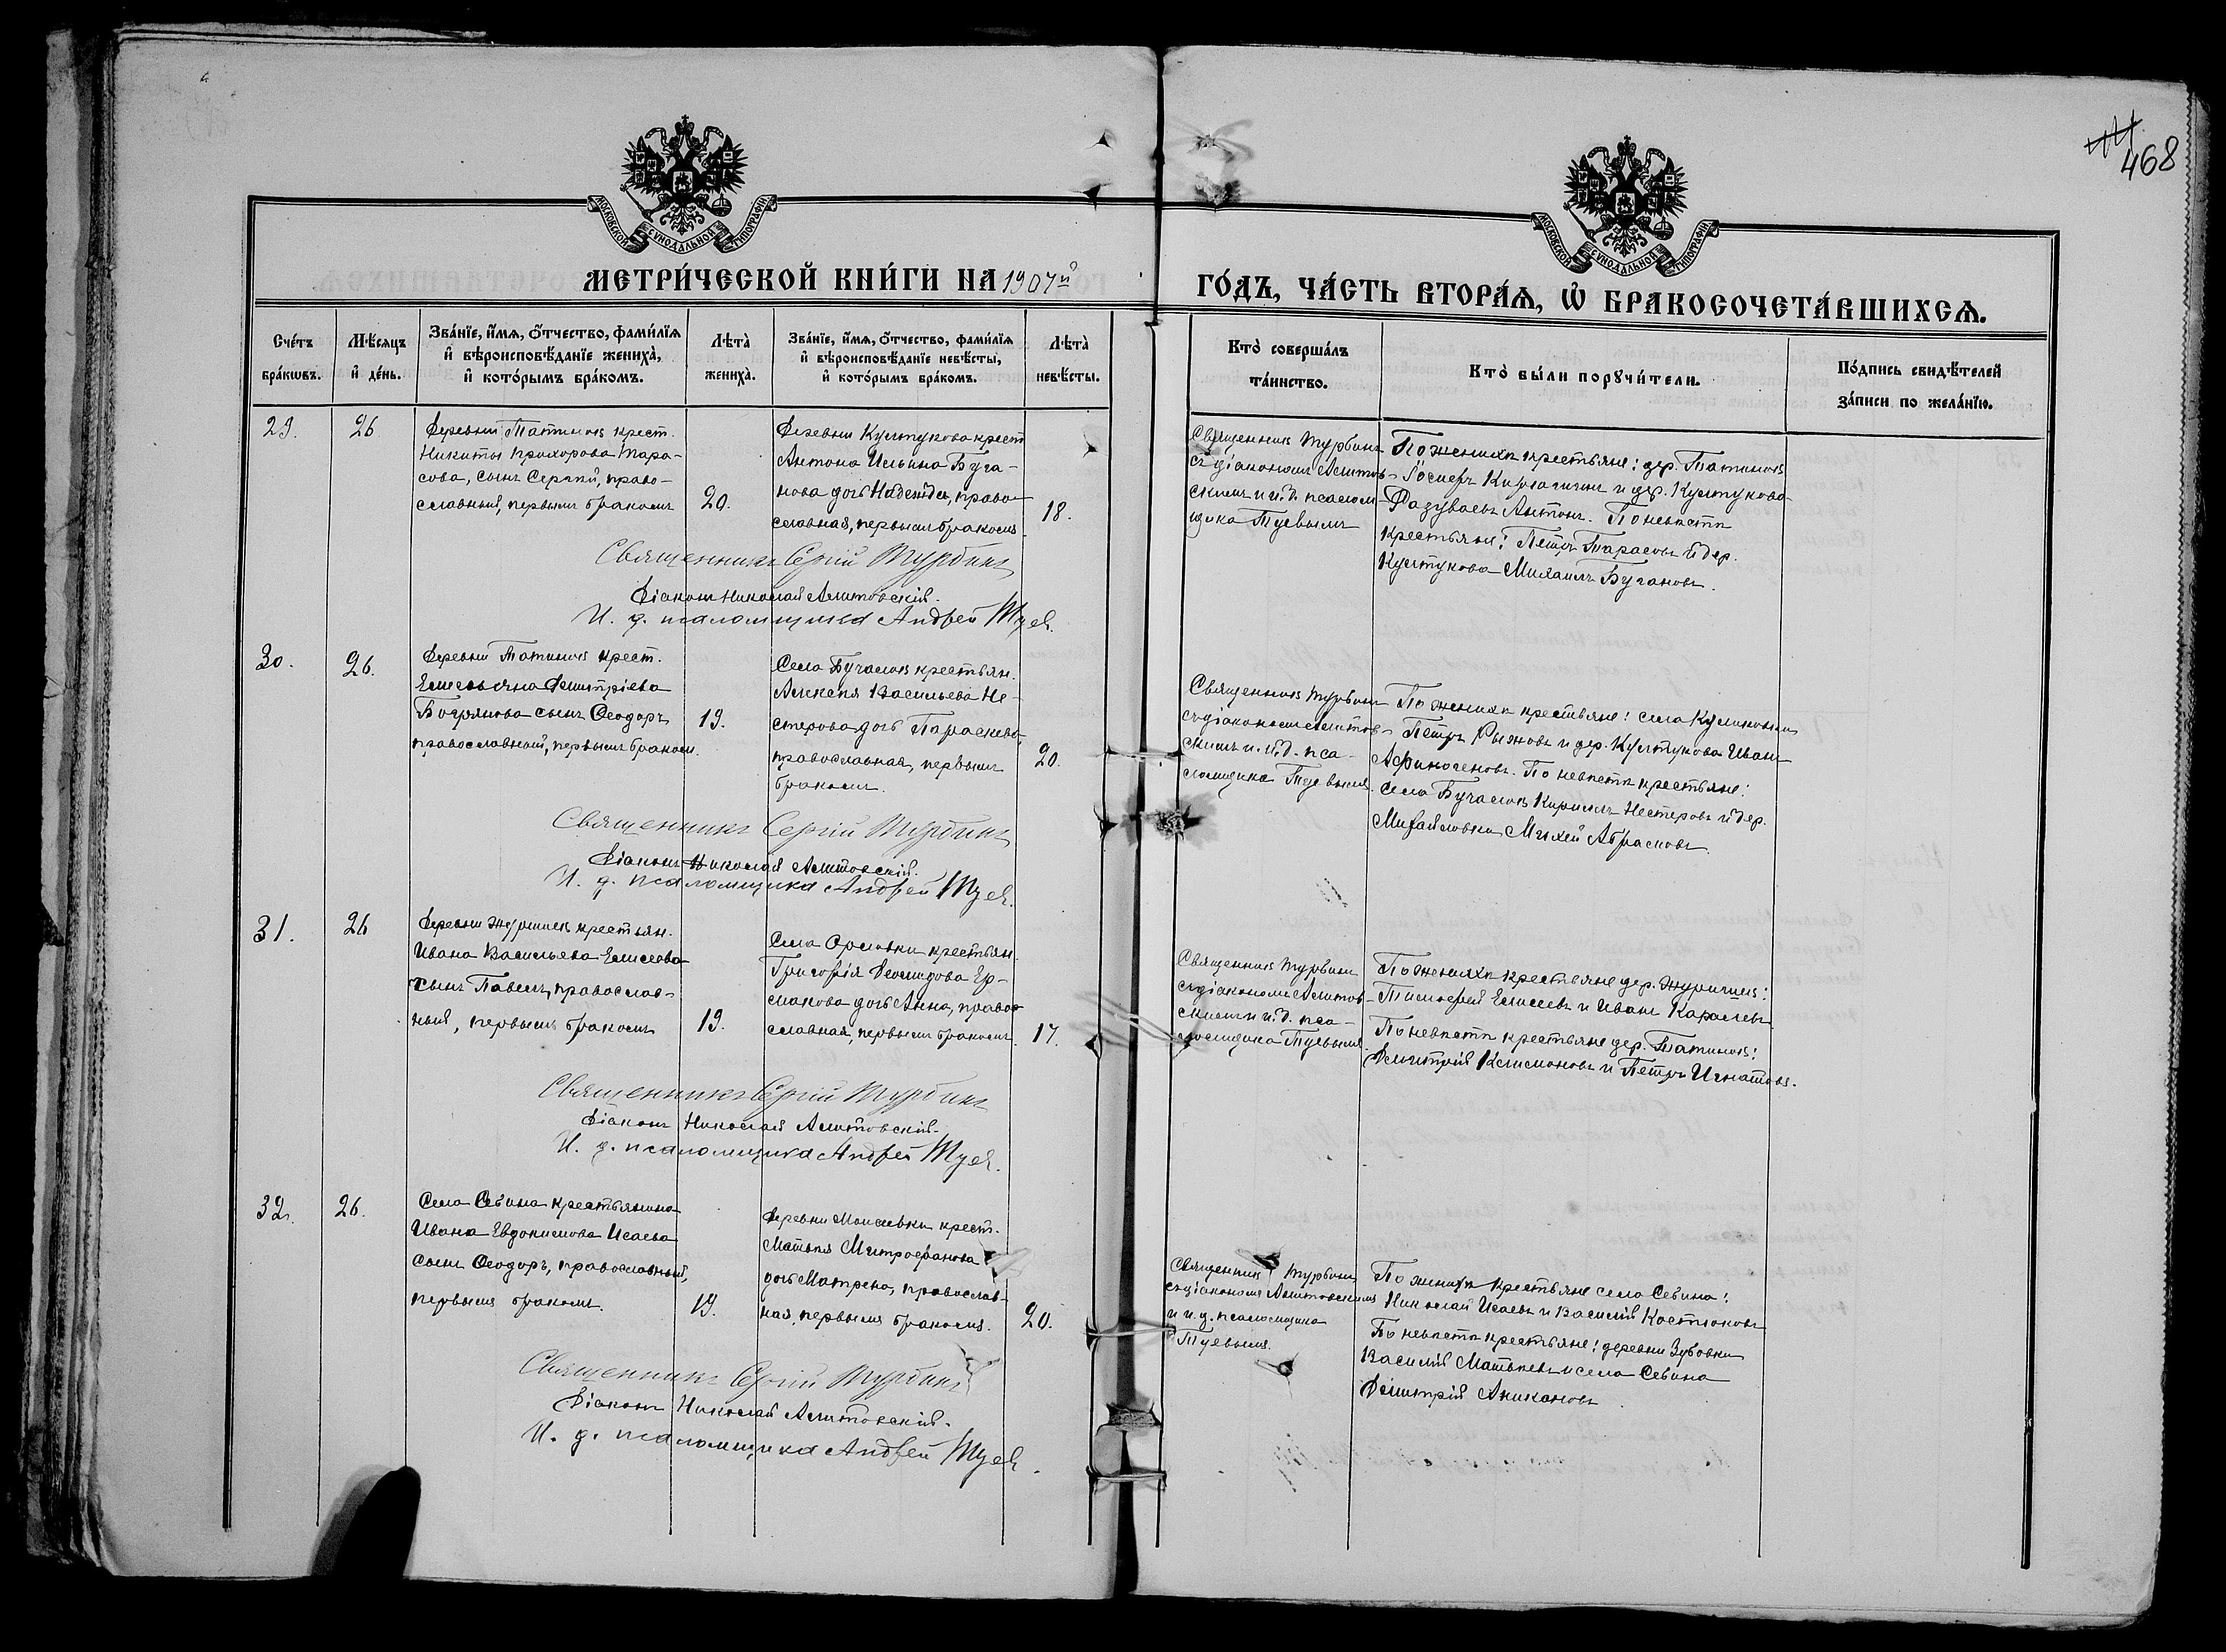 468
МОСКОВСКОЙ СѴНОДАЛЬНОЙ ТИПОГРАФІИ
МОСКОВСКОЙ СѴНОДАЛЬНОЙ ТИПОГРАФІИ
МЕТРИ́ЧЕСКОЙ КНИ́ГИ НА 1907й
ГО́ДЪ, ЧА́СТЬ ВТОРА́Ѧ, Ѡ БРАКОСОЧЕТА́ВШИХСѦ.
Сче́тъ
бра́кѡвъ.
Мѣ́сяцъ
и де́нь.
Зва́нїе, и́мѧ, о́тчество, фами́лїѧ
и вѣроисповѣ́данїе жениха̀,
и кото́рымъ бра́комъ.
Лѣ́та
жениха̀.
Зва́нїе, и́мѧ, о́тчество, фами́лїѧ
и вѣроисповѣ́данїе невѣ́сты,
и кото́рымъ бра́комъ.
Лѣ́та
невѣ́сты.
Кто̀ соверша́лъ
та́инство.
Кто̀ бы́ли порꙋчи́тели.
По́дпись свидѣ́телей
за́писи по жела́нїю.
29.
26
Деревни Татинокъ крест.
Никиты Прохорова Тара-
сова, сынъ Сергѣй, право-
славный, первымъ бракомъ
20.
Деревни Култукова крест
Антона Ильина Буга-
нова дочь Надежда, право-
славная, первымъ бракомъ
18.
Священникъ Турбинъ
съ діакономъ Алитов-
скимъ и и.д. псалом-
щика Туевымъ
По женихѣ крестьяне: дер. Татинокъ
Киргагинъ и дер. Култукова
Разуваевъ Антонъ. По невѣстѣ
крестьяне: Петръ Тарасовъ и дер.
Култукова Михаилъ Бугановъ.
Священникъ Сергій Турбинъ
Діаконъ Николай Алитовскій.
И. д. псаломщика Андрей Туев.
30.
26.
Деревни Татинокъ крест.
Емельяна Димитріева
Богрянова сынъ Ѳеодоръ
православный, первымъ бракомъ.
19.
Села Бучалокъ крестьян.
Алексѣя Васильева Не-
стерова дочь Параскева,
православная, первымъ
бракомъ.
20.
Священникъ Турбинъ
съ діакономъ Алитов-
скимъ и. и.д. пса-
ломщика Туевымъ.
По женихѣ крестьяне: села Куликовки
Петръ Рыжовъ и дер. Култукова Иванъ
Афиногеновъ. По невѣстѣ крестьяне:
села Бучалокъ Кириллъ Нестеровъ и дер.
Михайловки Михей Абрамовъ.
Священникъ Сергій Турбинъ
Діаконъ Николай Алитовскій.
И. д. псаломщика Андрей Туев.
31.
26
Деревни Журишекъ крестьян.
Ивана Васильева Елисеева
сынъ Павелъ, православ-
ный, первымъ бракомъ
19.
Села Орловки крестьян.
Григорія Демидова Ер-
макова дочь Анна, право-
славная, первымъ бракомъ.
17.
Священникъ Турбинъ
съ діакономъ Алитов-
скимъ и и.д. пса-
ломщика Туевымъ.
По женихѣ крестьяне дер. Журишекъ:
Тимофей Елисеевъ и Иванъ Каралевъ
По невѣстѣ крестьяне дер. Татинокъ:
Димитрій Климоновъ и Петръ Игнатовъ.
Священникъ Сергій Турбинъ
Діаконъ Николай Алитовскій.
И. д. псаломщика Андрей Туев.
32.
26.
Села Севина крестьянина
Ивана Евдокимова Исаева
сынъ Ѳеодоръ, православный,
первымъ бракомъ.
19.
Деревни Моисеевки крест.
Матвѣя Митрофанова
дочь Матрена, православ-
ная, первымъ бракомъ.
20.
Священникъ Турбинъ
съ діакономъ Алитовскимъ
и и.д. псаломщика
Туевымъ.
По женихѣ крестьяне села Севина:
Николай Исаевъ и Василій Костюковъ
По невѣстѣ крестьяне: деревни Зубовки
Василій Матвѣевъ и села Севина
Димитрій Аникановъ
Священникъ Сергій Турбинъ
Діаконъ Николай Алитовскій.
И. д. псаломщика Андрей Туев.